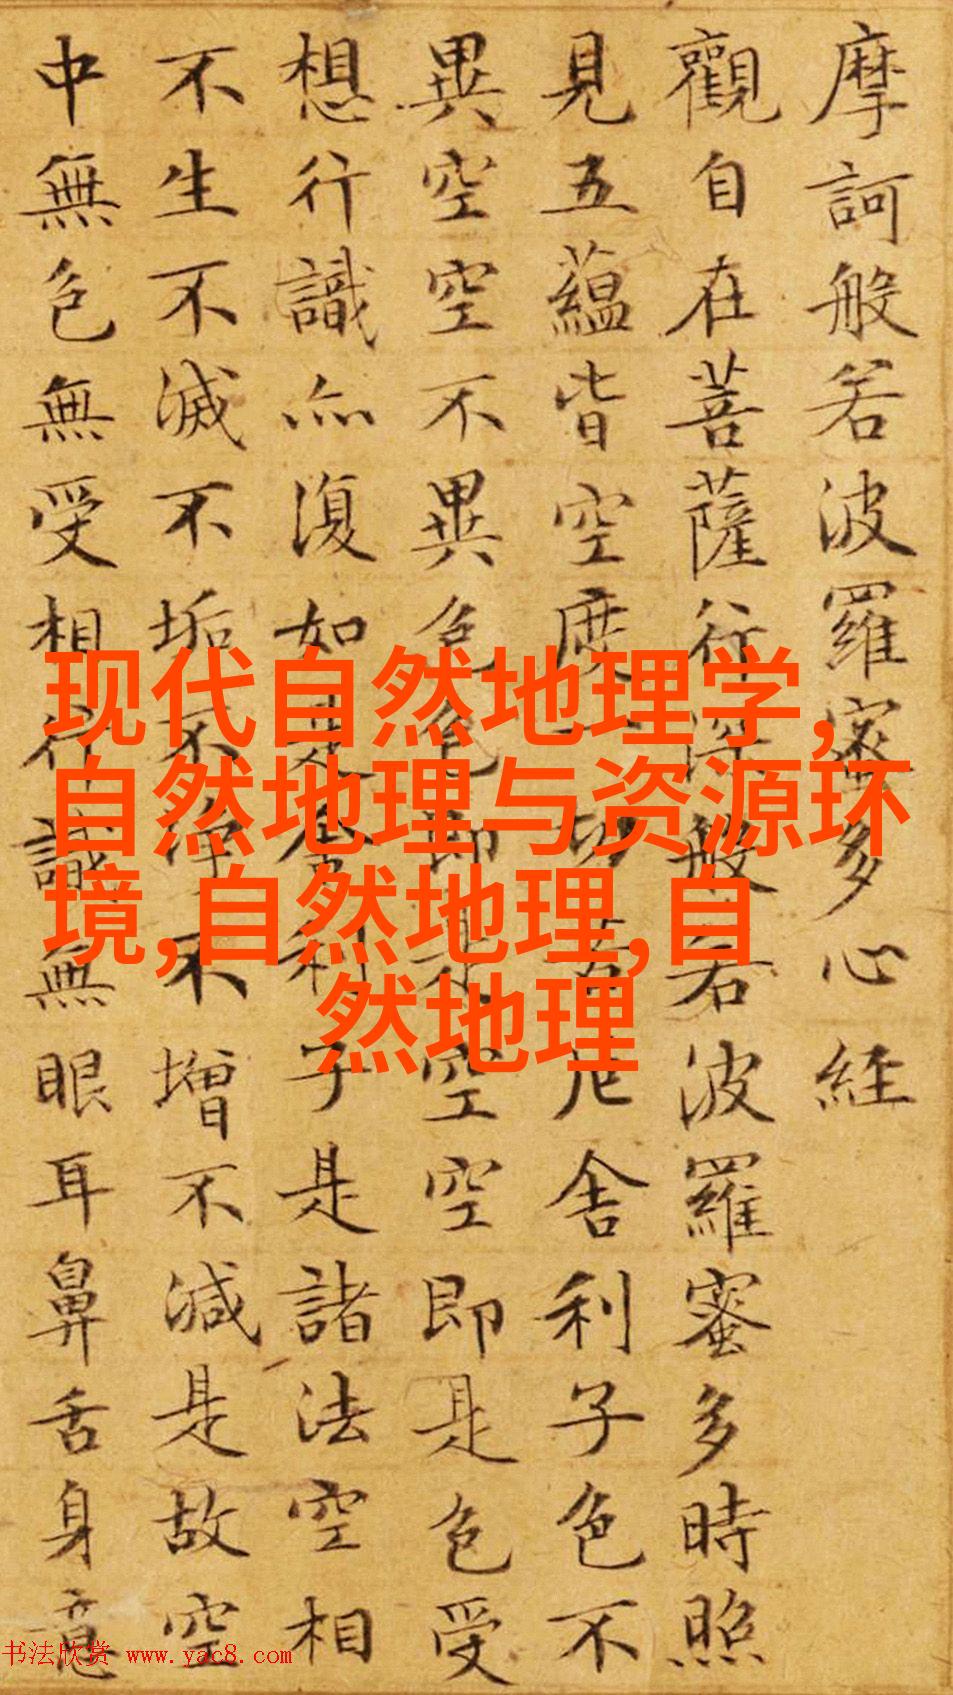 摩訶般若波羅蜜多心經
觀自在菩薩行深般若波羅蜜多時照
見五蘊皆空度一切苦厄舍利子色不
異空空不異色色即是空空即是色受
想行識亦復如是舍利子是諸法空相
不生不滅不垢不淨不增不減是故空
中無色無受想行識無眼耳鼻舌身意
现代自然地理学,
自然地理与资源环
境,自然地理,自
然地理
书法欣赏 www.yac8.com